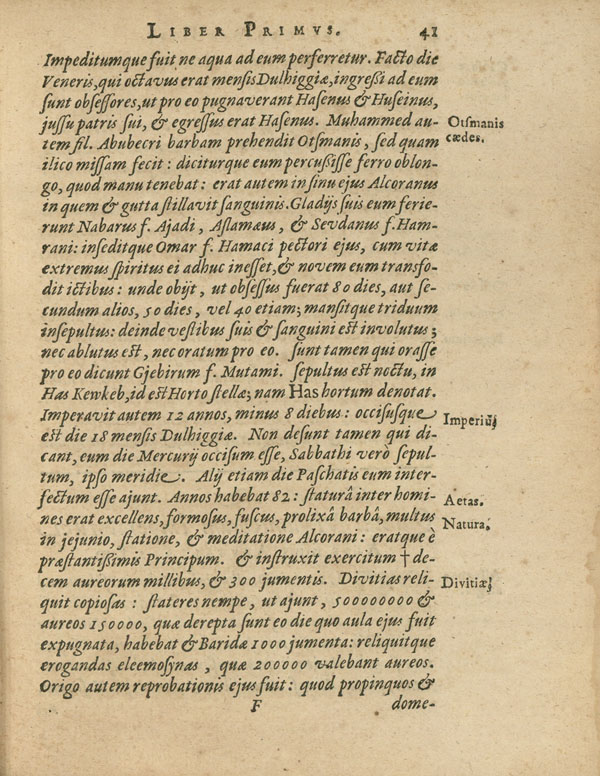 LIBER PRIMVS. 41
Impeditumque fuit ne aqua ad eum perferretur. Facto die
Veneris, qui octavus erat mensis Dulhiggiæ, ingreßi ad eum
sunt obsessores, ut pro eo pugnaverant Hasenus & Huseinus,
jussu patris sui, & egressus erat Hasenus. Muhammed au-
tem fil. Abubecri barbam prehendit Otsmanis, sed quam
Otsmanis
cædes.
ilico missam fecit: diciturque eum percußisse ferro oblon-
go, quod manu tenebat: erat autem in sinu ejus Alcoranus
in quem & gutta stillavit sanguinis. Gladijs suis eum ferie-
runt Nabarus f. Ajadi, Aslamæus, & Sevdanus f. Ham-
rani: inseditque Omar f. Hamaci pectori ejus, cum vitæ
extremus spiritus ei adhuc inesset, & novem eum transfo-
dit ictibus: unde obijt, ut obsessus fuerat 80 dies, aut se-
cundum alios, 50 dies, vel 40 etiam; mansitque triduum
insepultus: deinde vestibus suis & sanguini est involutus;
nec ablutus est, nec oratum pro eo. sunt tamen qui orasse
pro eo dicunt Gjebirum f. Mutami. sepultus est noctu, in
Has Kewkeb, id est Horto stellæ; nam Has hortum denotat.
Imperavit autem 12 annos, minus 8 diebus: occisusque
Imperiũ;
est die 18 mensis Dulhiggiæ. Non desunt tamen qui di-
cant, eum die Mercurij occisum esse, Sabbathi verò sepul-
tum, ipso meridie. Alij etiam die Paschatis eum inter-
fectum esse ajunt. Annos habebat 82: staturâ inter homi-
Aetas.
nes erat excellens, formosus, fuscus, prolixâ barbâ, multus
Natura,
in jejunio, statione, & meditatione Alcorani: eratque è
præstantißimis Principum. & instruxit exercitum † de-
cem aureorum millibus, & 300 jumentis. Divitias reli-
Divitiæ;
quit copiosas: stateres nempe, ut ajunt, 50000000 &
aureos 150000, quæ derepta sunt eo die quo aula ejus fuit
expugnata, habebat & Baridæ 1000 jumenta: reliquitque
erogandas eleemosynas, quæ 200000 valebant aureos.
Origo autem reprobationis ejus fuit: quod propinquos &
F dome-